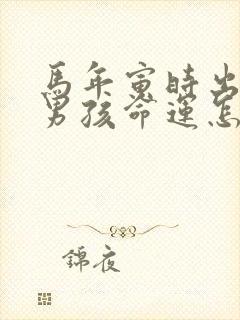 馬年寅時出
男孩命運怎
錦夜